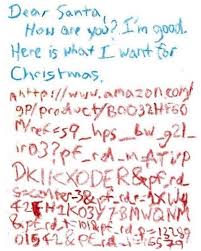 Dear Santa,
How are you? I'm good.
Here is what I want for
Christmas.
http://www.amazon.com/
gp/product/B0032HF60
M/ref=s9_hps_bw_g21_
ir03?pf_rd_m=ATVP
DKIKX0DER&pf_rd_
s=center-3&pf_rd_r=1XW4
42FH1K03Y78MWQNM
&pf_rd_t=101&pf_rd_p=